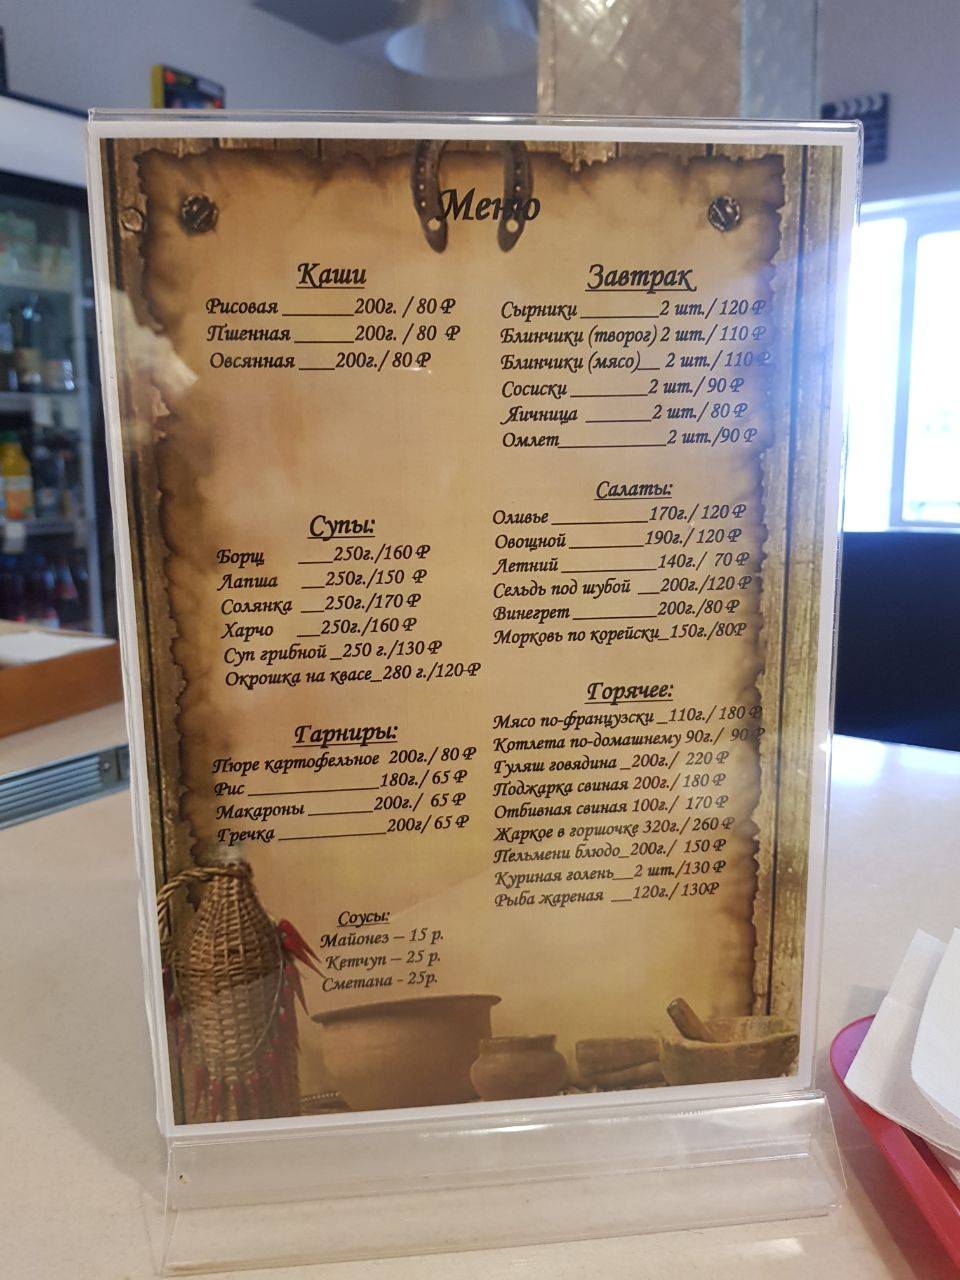 Меню
Каши
Рисовая _______200г. / 80 ₽
Пшенная ______200г. / 80 ₽
Овсянная ____200г./ 80 ₽
Завтрак
Сырники ________2 шт./ 120 ₽
Блинчики (творог) 2 шт./ 110 ₽
Блинчики (мясо)__ 2 шт./ 110 ₽
Сосиски ________2 шт./ 90 ₽
Яичница _______2 шт./ 80 ₽
Омлет___________2 шт./90 ₽
Супы:
Борщ ____250г./160 ₽
Лапша ___250г./150 ₽
Солянка ___250г./170 ₽
Харчо ___250г./160 ₽
Суп грибной _250 г./130 ₽
Окрошка на квасе_280 г./120 ₽
Салаты:
Оливье __________170г./ 120 ₽
Овощной ________190г./ 120 ₽
Летний __________140г./ 70 ₽
Сельдь под шубой __200г./120 ₽
Винегрет _________200г./80 ₽
Морковь по корейски_150г./80₽
Гарниры:
Пюре картофельное 200г./ 80 ₽
Рис ______________180г./ 65 ₽
Макароны _______200г./ 65 ₽
Гречка ____________200г/ 65 ₽
Горячее:
Мясо по-французски _110г./ 180 ₽
Котлета по-домашнему 90г./ 90 ₽
Гуляш говядина _200г./ 220 ₽
Поджарка свиная 200г./ 180 ₽
Отбивная свиная 100г./ 170 ₽
Жаркое в горшочке 320г./ 260 ₽
Пельмени блюдо_200г./ 150 ₽
Куриная голень__2 шт./130 ₽
Рыба жареная __120г./ 130₽
Соусы:
Майонез – 15 р.
Кетчуп – 25 р.
Сметана - 25р.